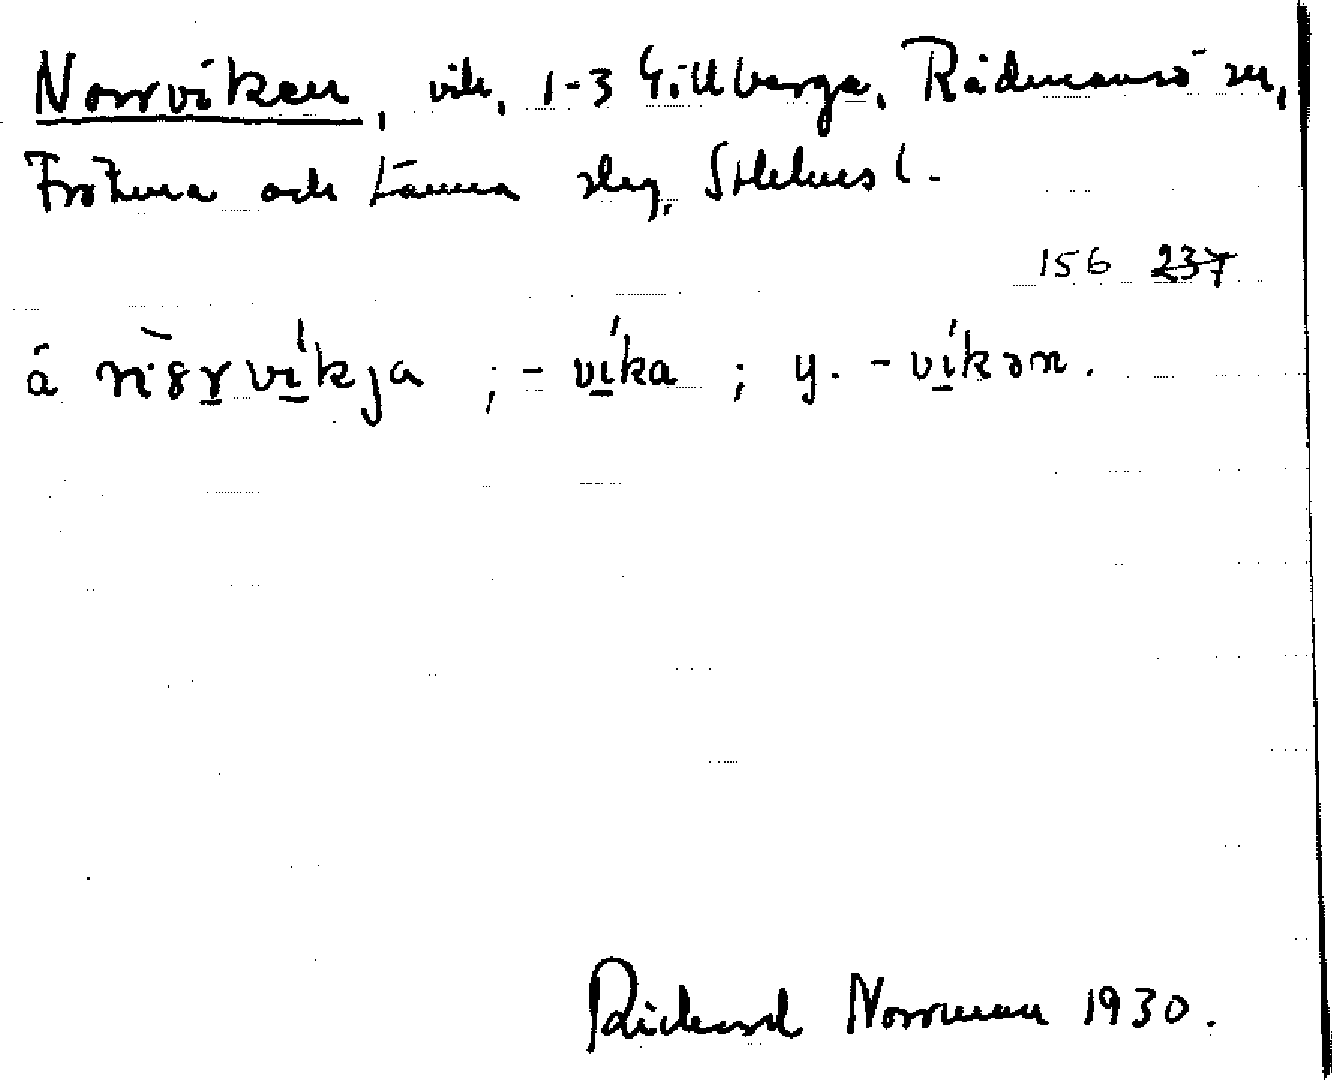 Norrviken, vik, 1-3 Gillberga, Rådmansö sn,
Frötuna och Länna slg, Sthlms l.
156 237
å vikja ; - vika ; y. - vikən.
Rickard Norrman 1930.